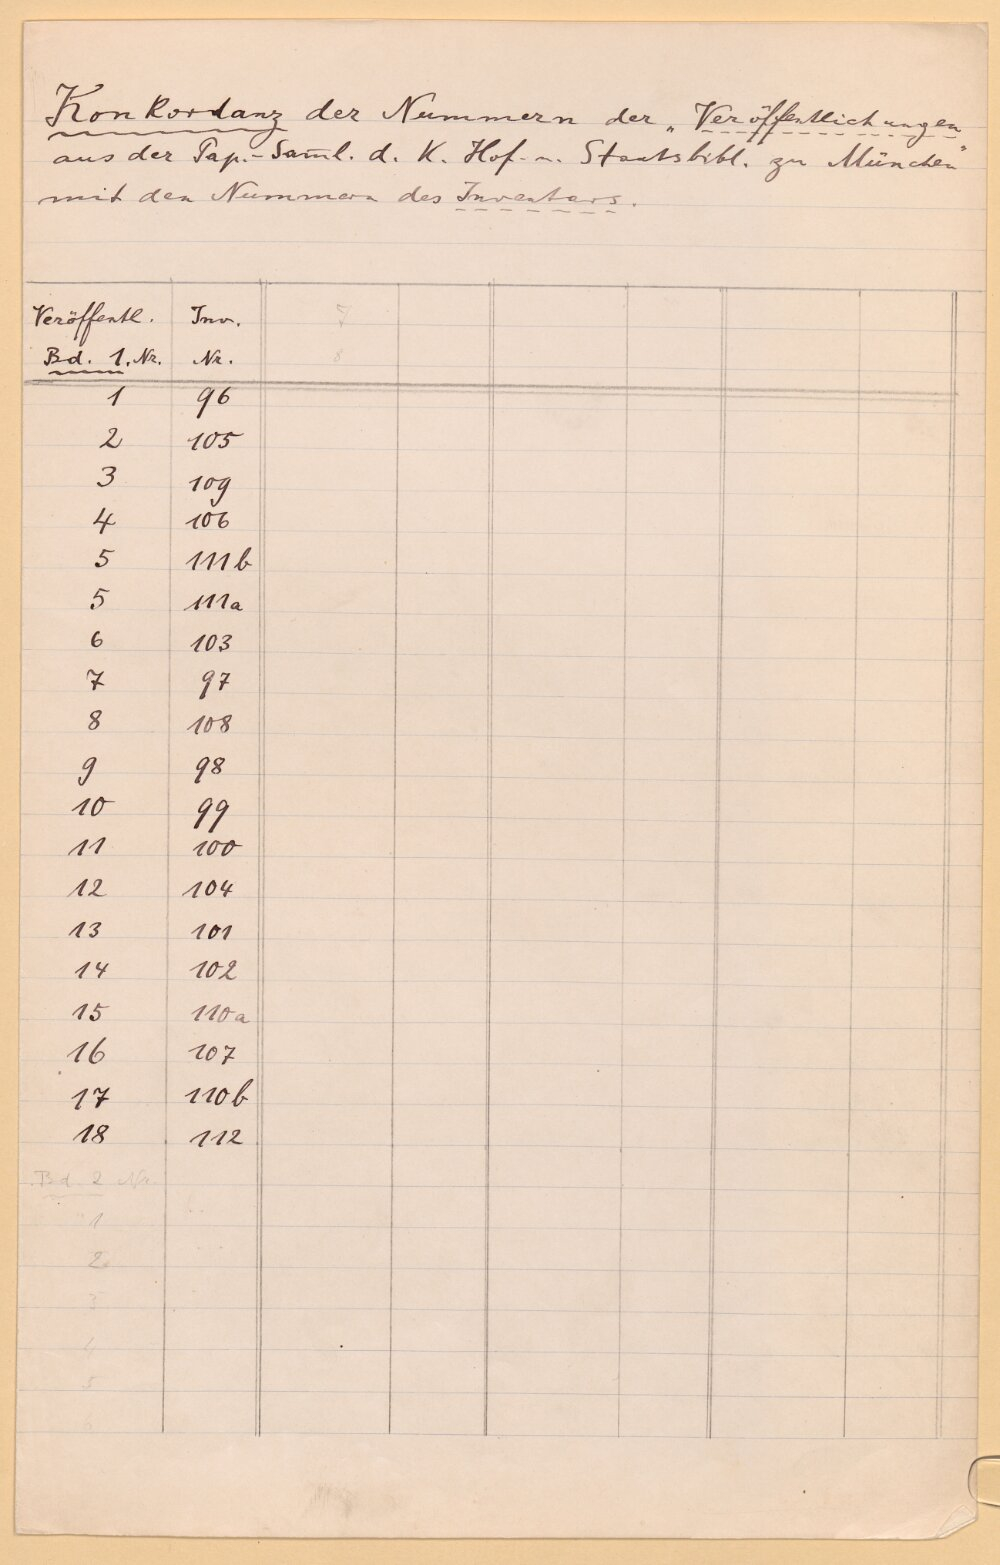 Konkordanz der Nummern der „Veröffentlichungen
aus der Pap.-Saml. d. K. Hof- u. Staatsbibl. zu München"
mit den Nummern des Inventars.
Veröffentl. Inv.
Bd. 1. Nr. Nr.
1 96
2 105
3 109
4 106
5 111b
5 111a
6 103
7 97
8 108
9 98
10 99
11 100
12 104
13 101
14 102
15 110a
16 107
17 110b
18 112
Bd. 2 Nr.
1
2
3
4
5
6